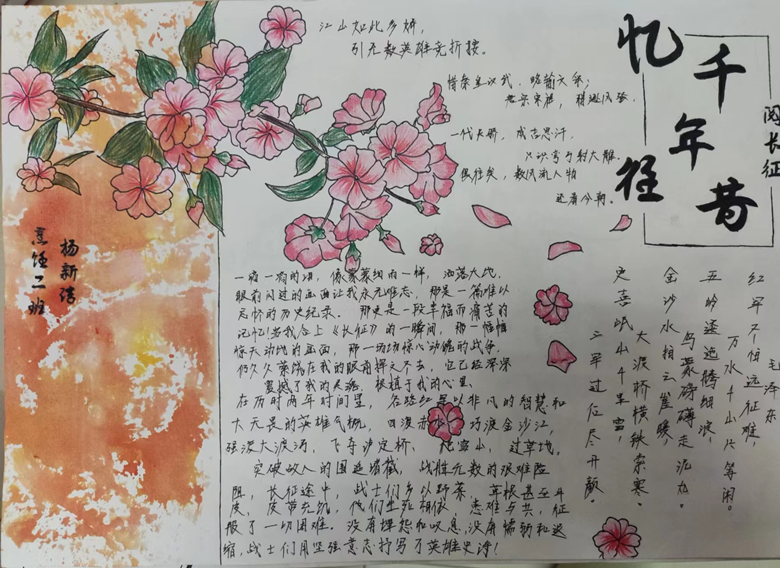 忆往
千年昔
阅长征
江山如此多娇，
引无数英雄竞折接。
惜秦皇汉武，略输文采；
唐宗宋祖，稍逊风骚。
一代天骄，成吉思汗，
只识弯弓射大雕。
俱往矣，数风流人物
还看今朝。
毛泽东
红军不怕远征难，
万水千山只等闲。
五岭逶迤腾细浪
乌蒙磅礴走泥丸。
金沙水拍云崖暖，
大渡桥横铁索寒。
更喜岷山千里雪，
三军过后尽开颜。
杨新
烹饪二班
一颗一颗的泪，像蒙蒙细雨一样，洒落大地，
眼前闪过的画面让我永无难忘，那是一篇难以
忘怀的历史纪录。那更是一段幸福而痛苦的
记忆！当我合上《长征》的一瞬间，那一幅幅
惊天动地的画面，那一场场惊心动魄的战争，
仍久久萦绕在我的眼前挥之不去，它已经深深
震撼了我的灵魂，根植于我的心里。
在历时两年时间里，各路红军以非凡的智慧和
大无畏的英雄气概，四渡赤水，巧渡金沙江，
强渡大渡河，飞夺泸定桥，爬雪山，过草地，
突破敌人的围追堵截，战胜无数的艰难险
阻，长征途中，战士们多以野菜，草根甚至牛
皮，皮带充饥，他们生死相依，患难与共，征
服了一切困难。没有埋怨和叹息，没有懦弱和退
缩，战士们用坚强意志抒写了英雄史诗！